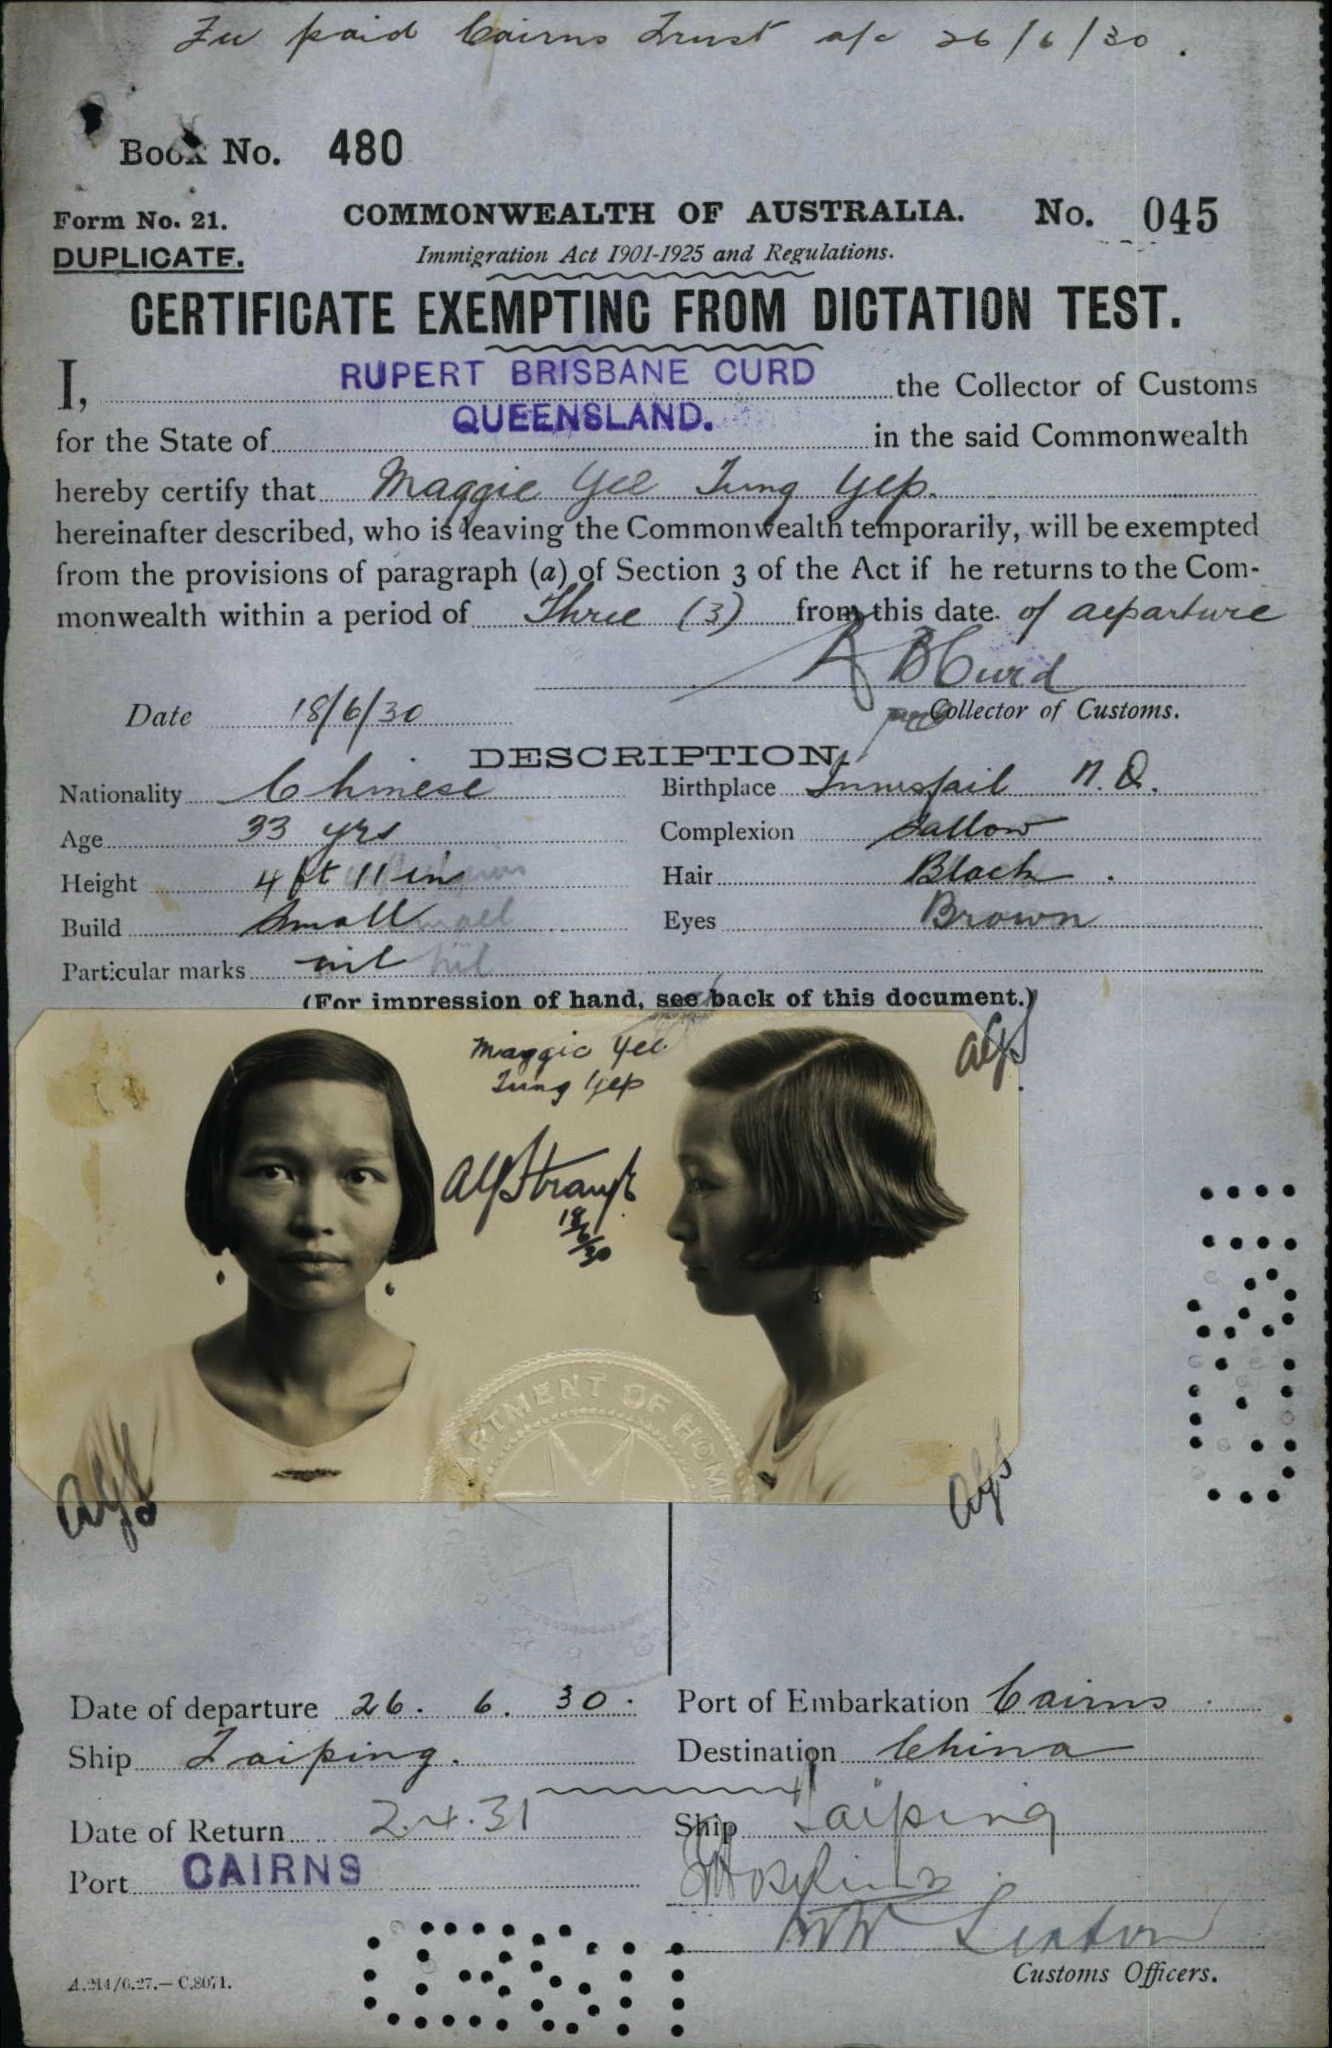 Fee paid Cairns Trust a/c 26/6/30.
Book No. 480
Form No. 21. COMMONWEALTH OF AUSTRALIA. No. 045
DUPLICATE. Immigration Act 1901-1925 and Regulations.
CERTIFICATE EXEMPTING FROM DICTATION TEST.
I, RUPERT BRISBANE CURD the Collector of Customs
for the State of QUEENSLAND. in the said Commonwealth
hereby certify that Maggie Yee Tung Yep.
hereinafter described, who is leaving the Commonwealth temporarily, will be exempted
from the provisions of paragraph (a) of Section 3 of the Act if he returns to the Com-
monwealth within a period of Three (3) from this date of departure
R B Curd
Date 18/6/30 Collector of Customs.
DESCRIPTION.
Nationality Chinese Birthplace Innisfail N.Q.
Age 33 yrs Complexion Sallow
Height 4 ft 11 in Hair Black.
Build Small Eyes Brown
Particular marks nil nil
(For impression of hand, see back of this document.)
Maggie Yee
Tung Yep
18/6/30
DEPARTMENT OF HOME
Date of departure 26. 6. 30. Port of Embarkation Cairns.
Ship Taiping. Destination China
Date of Return 2.4.31 Ship Taiping
Port CAIRNS
Customs Officers.
A.214/6.27.—C.8071.